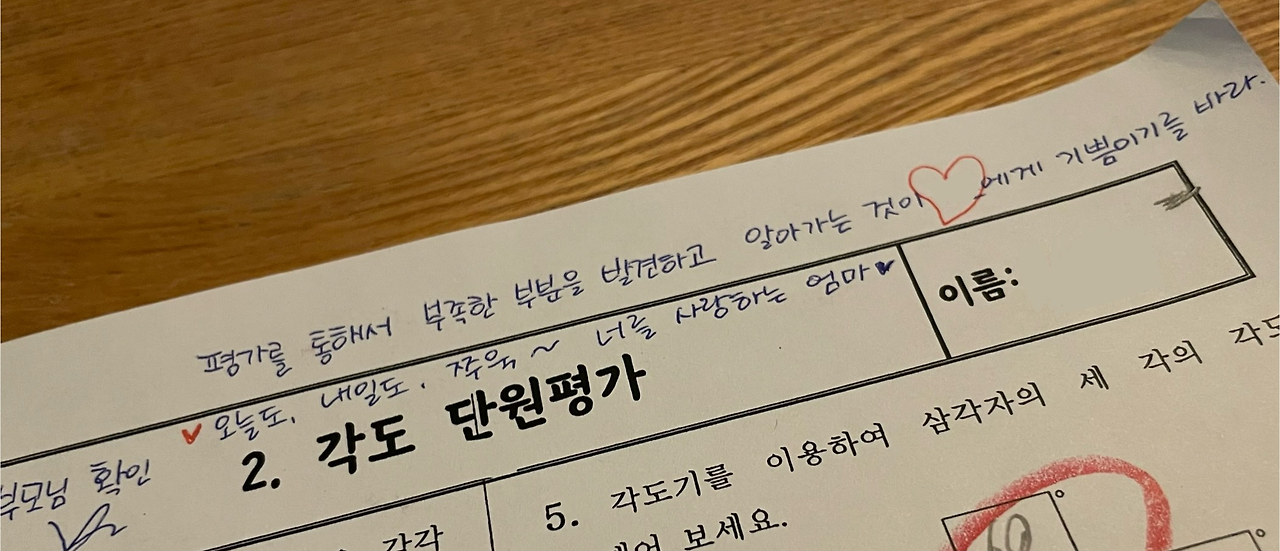 평가를 통해서 부족한 부분을 발견하고 알아가는 것이 에게 기쁨이기를 바라.
오늘도, 내일도, 쭈욱~ 너를 사랑하는 엄마
이름:
2. 각도 단원평가
부모님 확인
5. 각도기를 이용하여 삼각자의 세 각의 각도
보세요.
각각
60